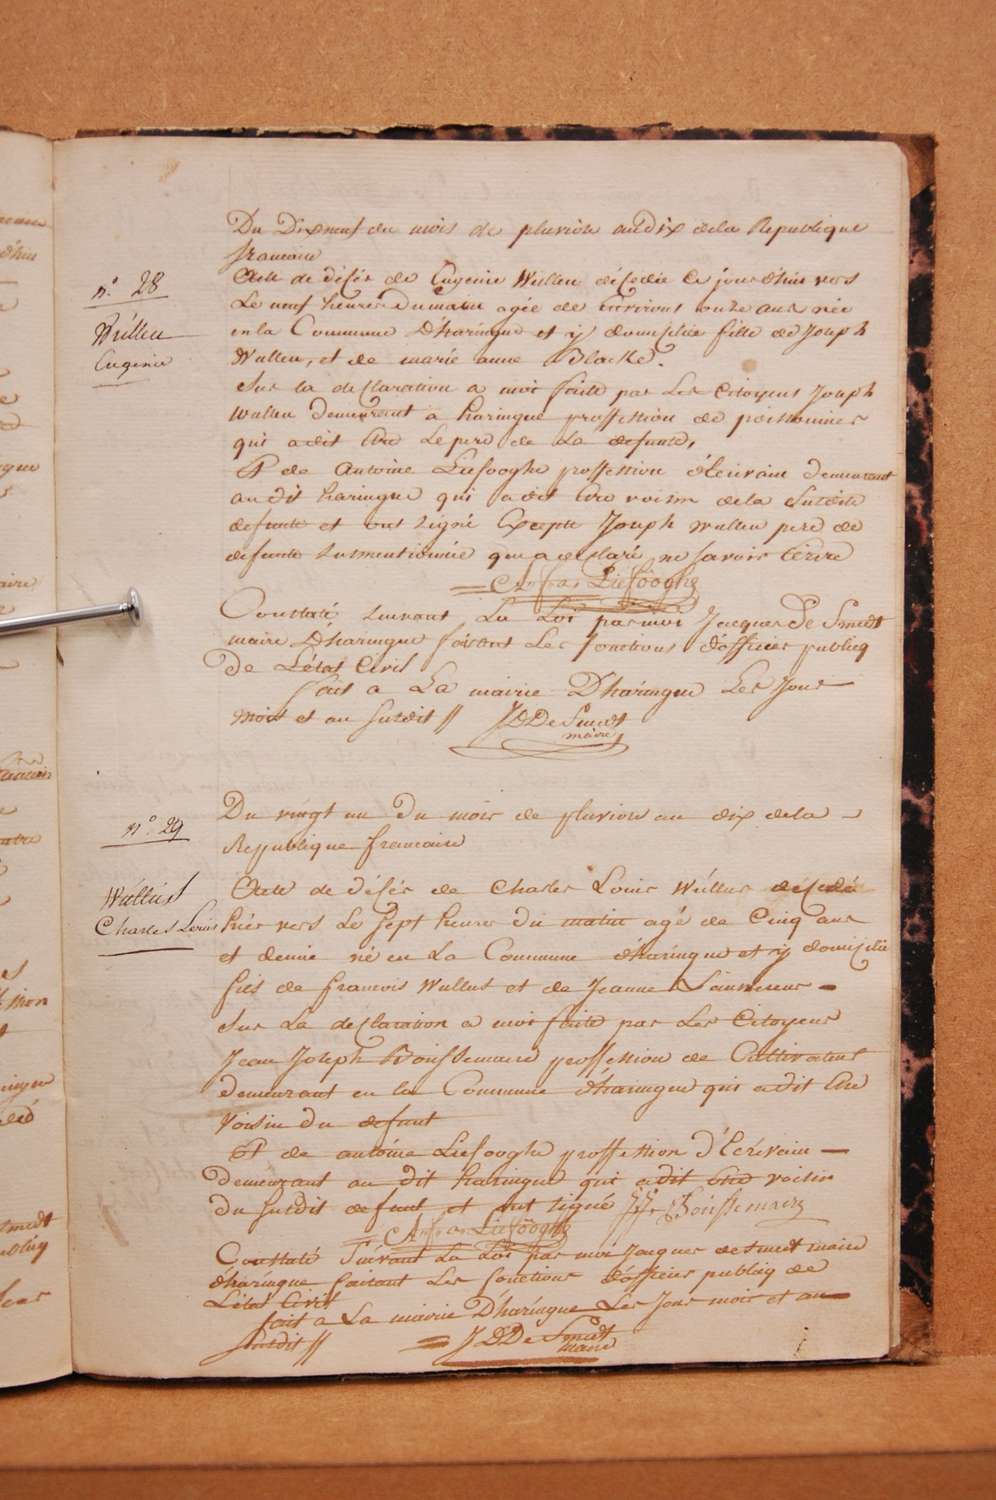 Du Dixneuf du mois de pluviose an dix de la Republique
francaise
n.° 28
Wúlleu
Eugenie
Acte de désés de Eugenie Wulleu décedée ce jourdhui vers
Le neuf heures du matin agée de environs onze ans née
en la Commune Dharingue et ÿ domiciliée fille de Joseph
Wulleu, et de marie anne Blacke.
Sur la declaration a moi faite par Les Citoyens Joseph
Wulleu demeurant a haringue proffession de poissonnier
qui adit être Le pere de La defunte,
Et de Antoine Liefooghe proffession d'Ecrivain demeurant
audit haringue qui a dit être voisin de la Susdite
defunte et ont signé Excepté Joseph Wulleu pere de
defunte susmentionnée qui a declaré ne savoir Ecrire
Ant Fran Liefooghe
Constaté suivant La Loi par moi Jacques De Smedt
maire Dharingue faisant Les fonctions d'officier publicq
De L'etat Civil
fait a La mairie Dharingue Les Jour
mois et an susdit //
JDDeSmedt
maire
n.° 29
Du vingt un du mois de pluviose an dix de la
Republique francaise
Wúllús
Charles Louis
Acte de désés de Charles Louis Wúllus décedé
hier vers Le sept heures du matin agé de Cinq ans
et demie né en La Commune d'haringue et ÿ domicilié
fils de francois Wullus et de Jeanne
Sur La declaration a moi faite par Les Citoyens
Jean Joseph Boussemaere proffession de Cultivateur
demeurant en la Commune d'haringue qui a dit être
voisin du defunt
Et de antoine Liefooghe proffession d'Ecrivain
demeurant au dit haringue qui a dit être voisin
du susdit defunt et ont signé JJ Boussemaere
Ant Fran Liefooghe
Constaté Suivant La Loi par moi Jacques de smedt maire
d'haringue faisant Les fonctions d'officier publiq de
L'etat Civil
fait a La mairie D'haringue Les Jour mois et an
susdit //
JDDeSmedt
maire